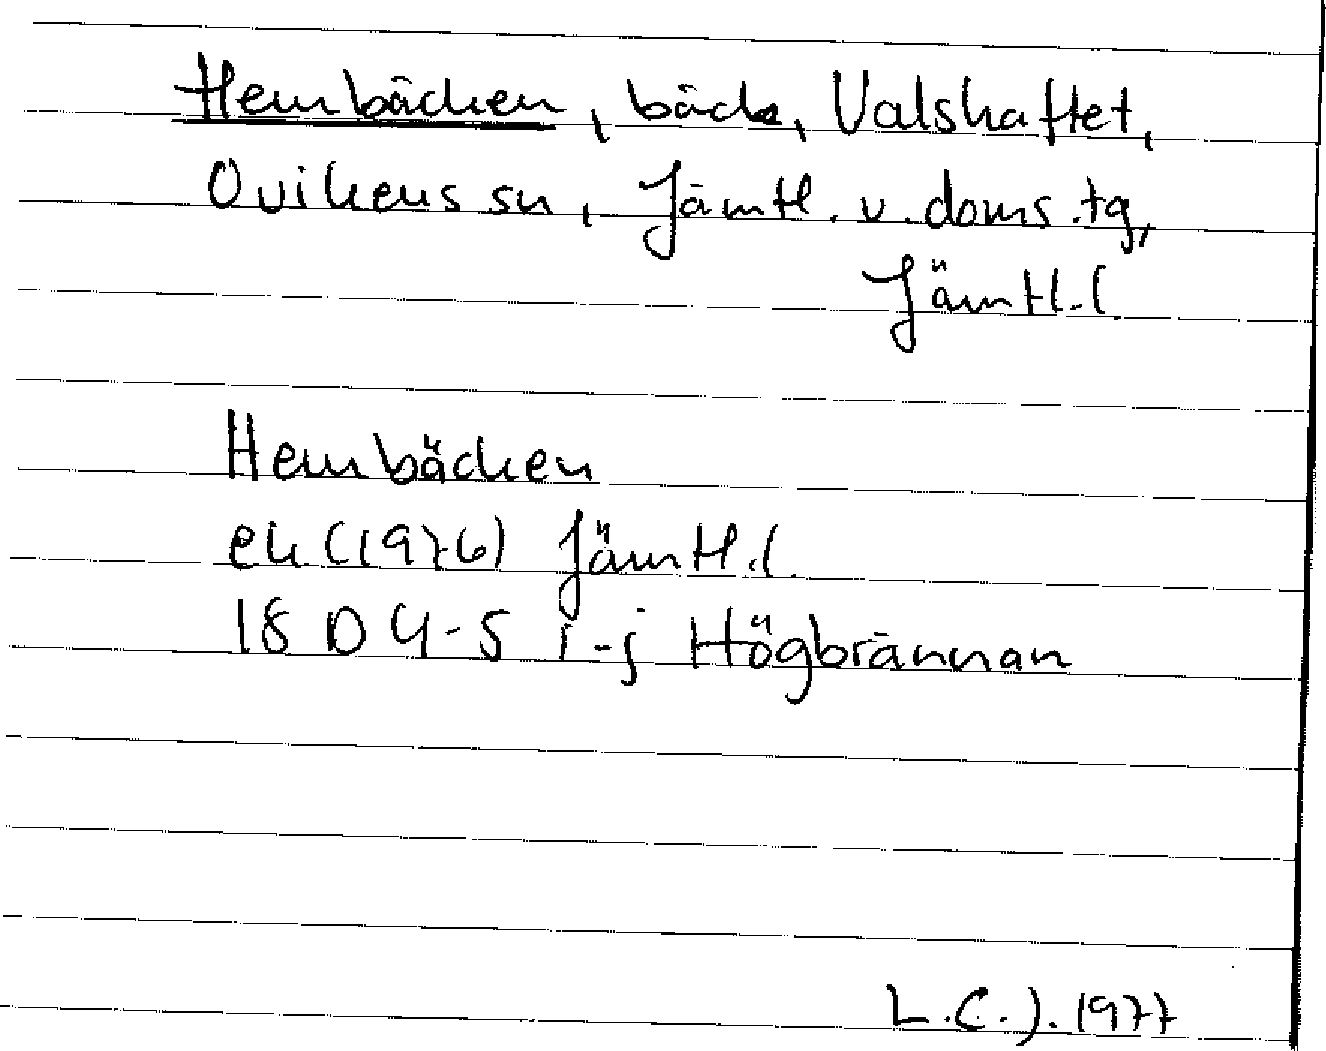 Hembäcken, bäck, Valskaftet,
Ovikens sn, Jämtl. v. doms.tg,
Jämtl.l
Hembäcken
ek (1976) Jämtl.l.
18 D 4-5 i-j Högbrännan
L.C.J. 1977